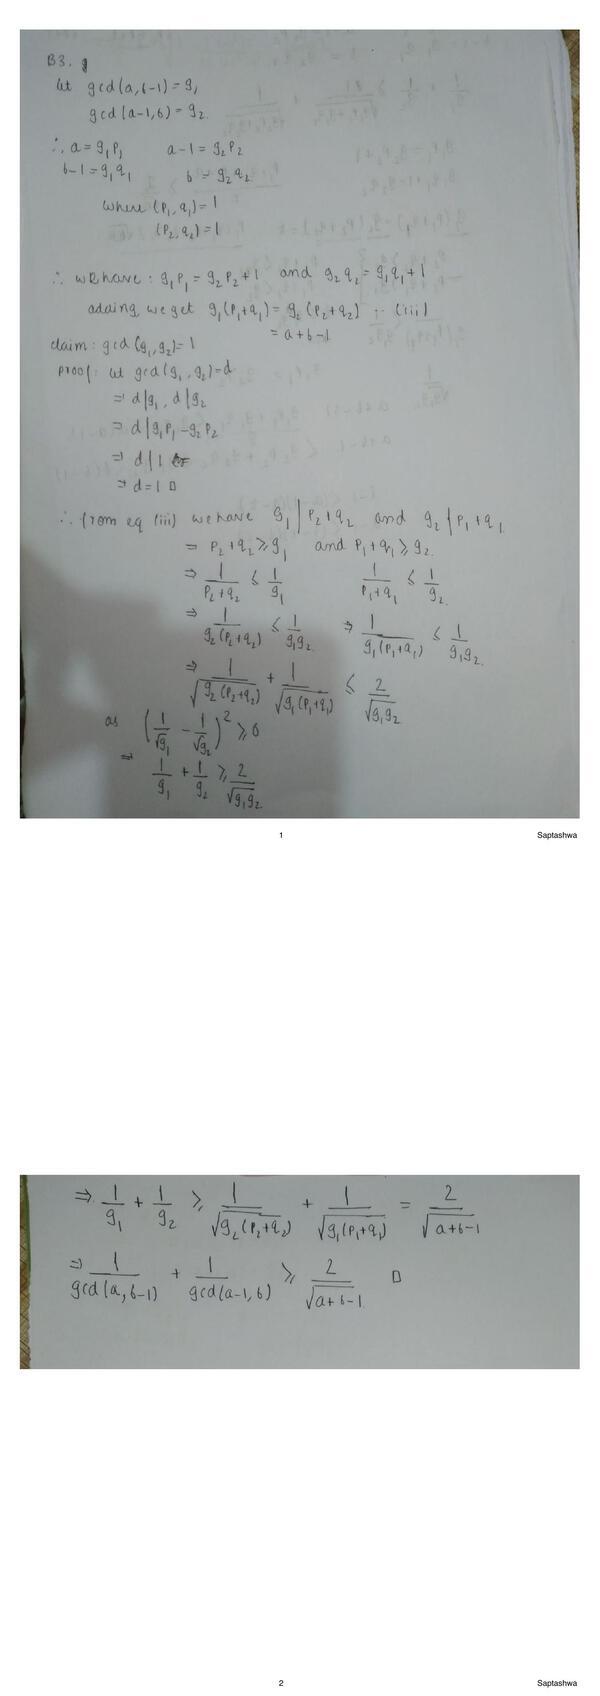 B3.
let gcd(a, b-1) = g₁
gcd(a-1, b) = g₂.
∴ a = g₁p₁ a-1 = g₂p₂
b-1 = g₁q₁ b = g₂q₂
where (p₁, q₁) = 1
(p₂, q₂) = 1
∴ we have: g₁p₁ = g₂p₂ + 1 and g₂q₂ = g₁q₁ + 1
adding, we get g₁(p₁+q₁) = g₂(p₂+q₂) ... (iii)
= a+b-1
claim: gcd(g₁, g₂) = 1
proof: let gcd(g₁, g₂) = d
⇒ d|g₁, d|g₂
⇒ d|g₁p₁ - g₂p₂
⇒ d|1
⇒ d = 1 □
∴ from eq (iii) we have g₁ | p₂+q₂ and g₂ | p₁+q₁
⇒ p₂+q₂ ≥ g₁ and p₁+q₁ ≥ g₂.
⇒ 1/(p₂+q₂) ≤ 1/g₁ 1/(p₁+q₁) ≤ 1/g₂.
⇒ 1/(g₂(p₂+q₂)) ≤ 1/(g₁g₂) ⇒ 1/(g₁(p₁+q₁)) ≤ 1/(g₁g₂)
⇒ 1/√(g₂(p₂+q₂)) + 1/√(g₁(p₁+q₁)) ≤ 2/√(g₁g₂)
as (1/√g₁ - 1/√g₂)² ≥ 0
⇒ 1/g₁ + 1/g₂ ≥ 2/√(g₁g₂)
1 Saptashwa
⇒ 1/g₁ + 1/g₂ ≥ 1/√(g₂(p₂+q₂)) + 1/√(g₁(p₁+q₁)) = 2/√(a+b-1)
⇒ 1/gcd(a, b-1) + 1/gcd(a-1, b) ≥ 2/√(a+b-1) □
2 Saptashwa